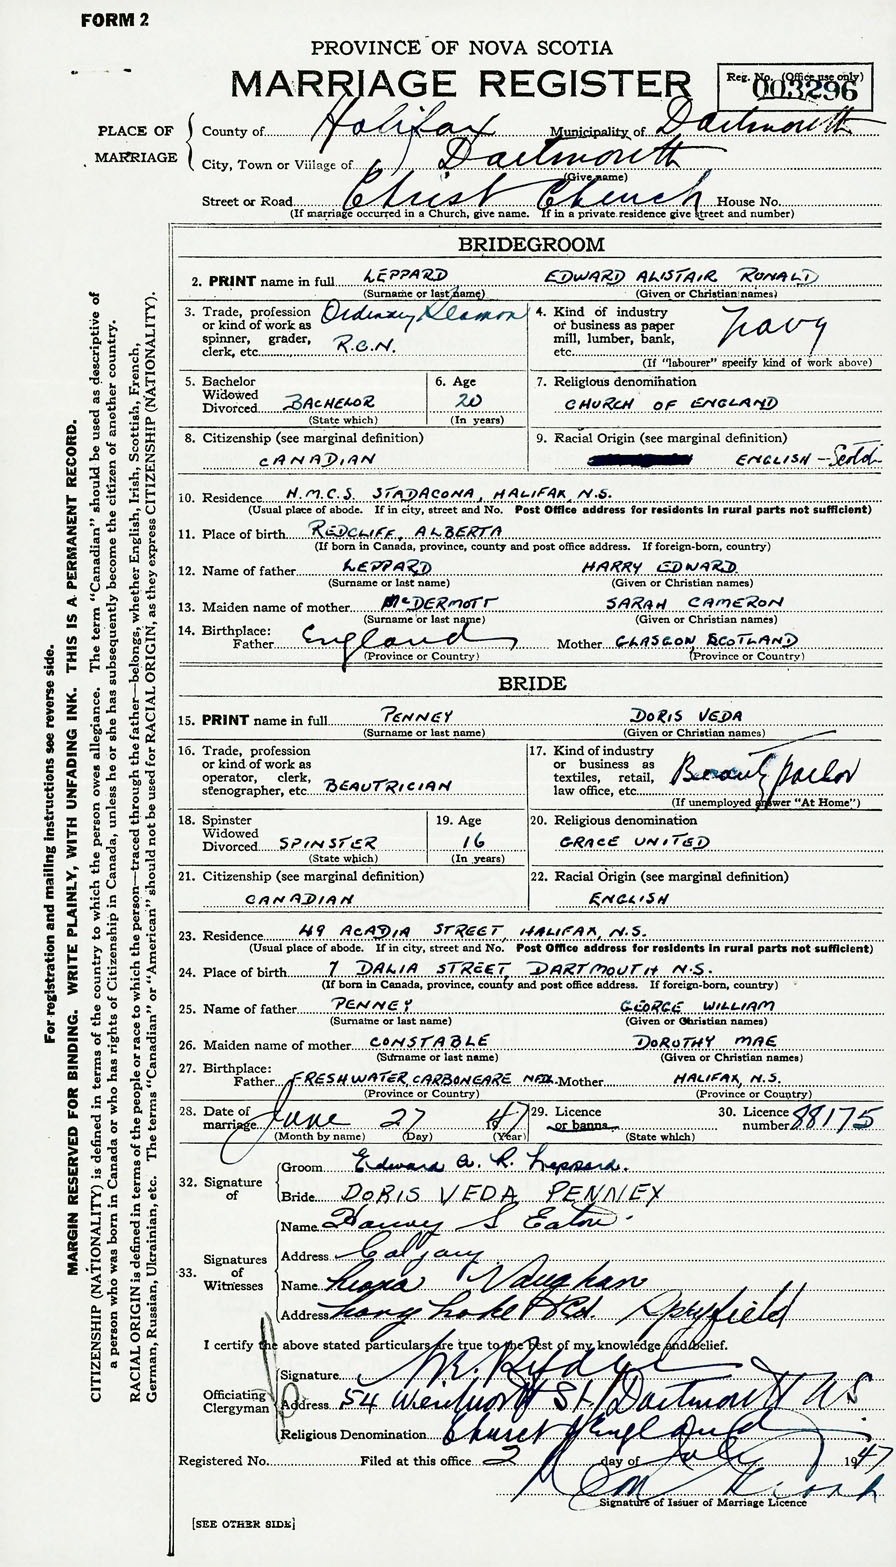 FORM 2
PROVINCE OF NOVA SCOTIA
MARRIAGE REGISTER
Reg. No. (Office use only)
003296
PLACE OF MARRIAGE
County of Halifax Municipality of Dartmouth
City, Town or Village of Dartmouth
(Give name)
Street or Road Christ Church House No.
(If marriage occurred in a Church, give name. If in a private residence give street and number)
BRIDEGROOM
2. PRINT name in full LEPPARD EDWARD ALISTAIR RONALD
(Surname or last name) (Given or Christian names)
3. Trade, profession or kind of work as spinner, grader, clerk, etc. Ordinary Seaman R.C.N.
4. Kind of industry or business as paper mill, lumber, bank, etc. Navy
(If "labourer" specify kind of work above)
5. Bachelor Widowed Divorced BACHELOR
(State which)
6. Age 20
(In years)
7. Religious denomination
CHURCH OF ENGLAND
8. Citizenship (see marginal definition)
CANADIAN
9. Racial Origin (see marginal definition)
ENGLISH - Scotch
10. Residence H.M.C.S. STADACONA, HALIFAX, N.S.
(Usual place of abode. If in city, street and No. Post Office address for residents in rural parts not sufficient)
11. Place of birth REDCLIFF, ALBERTA
(If born in Canada, province, county and post office address. If foreign-born, country)
12. Name of father LEPPARD HARRY EDWARD
(Surname or last name) (Given or Christian names)
13. Maiden name of mother McDERMOTT SARAH CAMERON
(Surname or last name) (Given or Christian names)
14. Birthplace:
Father England Mother GLASGOW SCOTLAND
(Province or Country) (Province or Country)
BRIDE
15. PRINT name in full PENNEY DORIS VEDA
(Surname or last name) (Given or Christian names)
16. Trade, profession or kind of work as operator, clerk, stenographer, etc BEAUTRICIAN
17. Kind of industry or business as textiles, retail, law office, etc. Beauty Parlor
(If unemployed answer "At Home")
18. Spinster Widowed Divorced SPINSTER
(State which)
19. Age 16
(In years)
20. Religious denomination
GRACE UNITED
21. Citizenship (see marginal definition)
CANADIAN
22. Racial Origin (see marginal definition)
ENGLISH
23. Residence 49 ACADIA STREET, HALIFAX, N.S.
(Usual place of abode. If in city, street and No. Post Office address for residents in rural parts not sufficient)
24. Place of birth 7 DALIA STREET, DARTMOUTH N.S.
(If born in Canada, province, county and post office address. If foreign-born, country)
25. Name of father PENNEY GEORGE WILLIAM
(Surname or last name) (Given or Christian names)
26. Maiden name of mother CONSTABLE DOROTHY MAE
(Surname or last name) (Given or Christian names)
27. Birthplace:
Father FRESHWATER, CARBONEARE NFDL. Mother HALIFAX, N.S.
(Province or Country) (Province or Country)
28. Date of marriage June 27 1947
(Month by name) (Day) (Year)
29. Licence or banns
(State which)
30. Licence number 88175
32. Signature of
Groom Edward A. R. Leppard.
Bride DORIS VEDA PENNEY
33. Signatures of Witnesses
Name Harvey S Eaton
Address Calgary
Name Leona Vaughan
Address Long Lake Rd. Spryfield
I certify the above stated particulars are true to the best of my knowledge and belief.
Officiating Clergyman
Signature
Address 54 Wentworth St. Dartmouth N S
Religious Denomination Church of England
Registered No. Filed at this office 2 day of July 1947
Signature of Issuer of Marriage Licence
[SEE OTHER SIDE]
For registration and mailing instructions see reverse side.
MARGIN RESERVED FOR BINDING. WRITE PLAINLY, WITH UNFADING INK. THIS IS A PERMANENT RECORD.
CITIZENSHIP (NATIONALITY) is defined in terms of the country to which the person owes allegiance. The term "Canadian" should be used as descriptive of
a person who was born in Canada or who has rights of Citizenship in Canada, unless he or she has subsequently become the citizen of another country.
RACIAL ORIGIN is defined in terms of the people or race to which the person—traced through the father—belongs, whether English, Irish, Scottish, French,
German, Russian, Ukrainian, etc. The terms "Canadian" or "American" should not be used for RACIAL ORIGIN, as they express CITIZENSHIP (NATIONALITY).